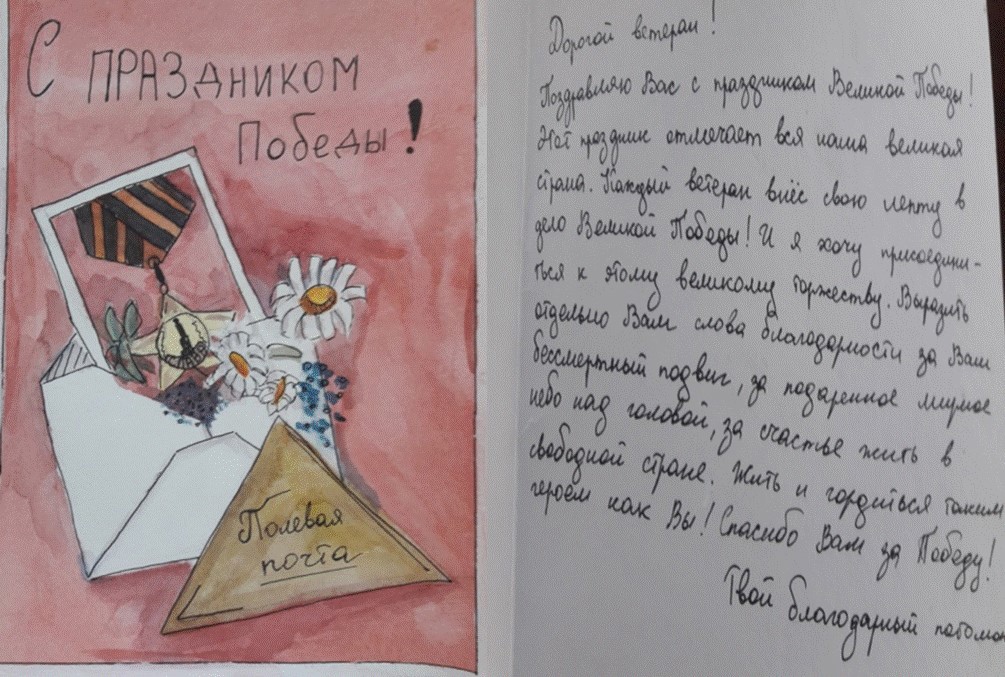 С ПРАЗДНИКОМ
Победы!
Полевая
почта
Дорогой ветеран!
Поздравляю Вас с праздником Великой Победы!
Этот праздник отмечает вся наша великая
страна. Каждый ветеран внёс свою лепту в
дело Великой Победы! И я хочу присоедини-
ться к этому великому торжеству. Выразить
отдельно Вам слова благодарности за Ваш
бессмертный подвиг, за подаренное мирное
небо над головой, за счастье жить в
свободной стране. Жить и гордиться таким
героем как Вы! Спасибо Вам за Победу!
Твой благодарный потомок